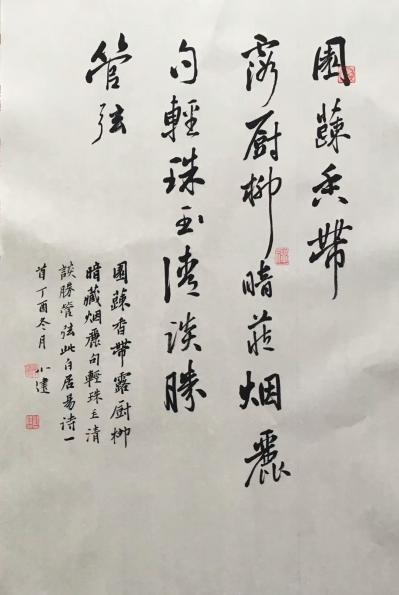 園蔬香帶
露厨柳暗藏烟麗
句輕珠玉清談勝
管弦
園蔬香帶露厨柳
暗藏烟麗句輕珠玉清
談勝管弦此白居易诗一
首丁酉冬月 小建